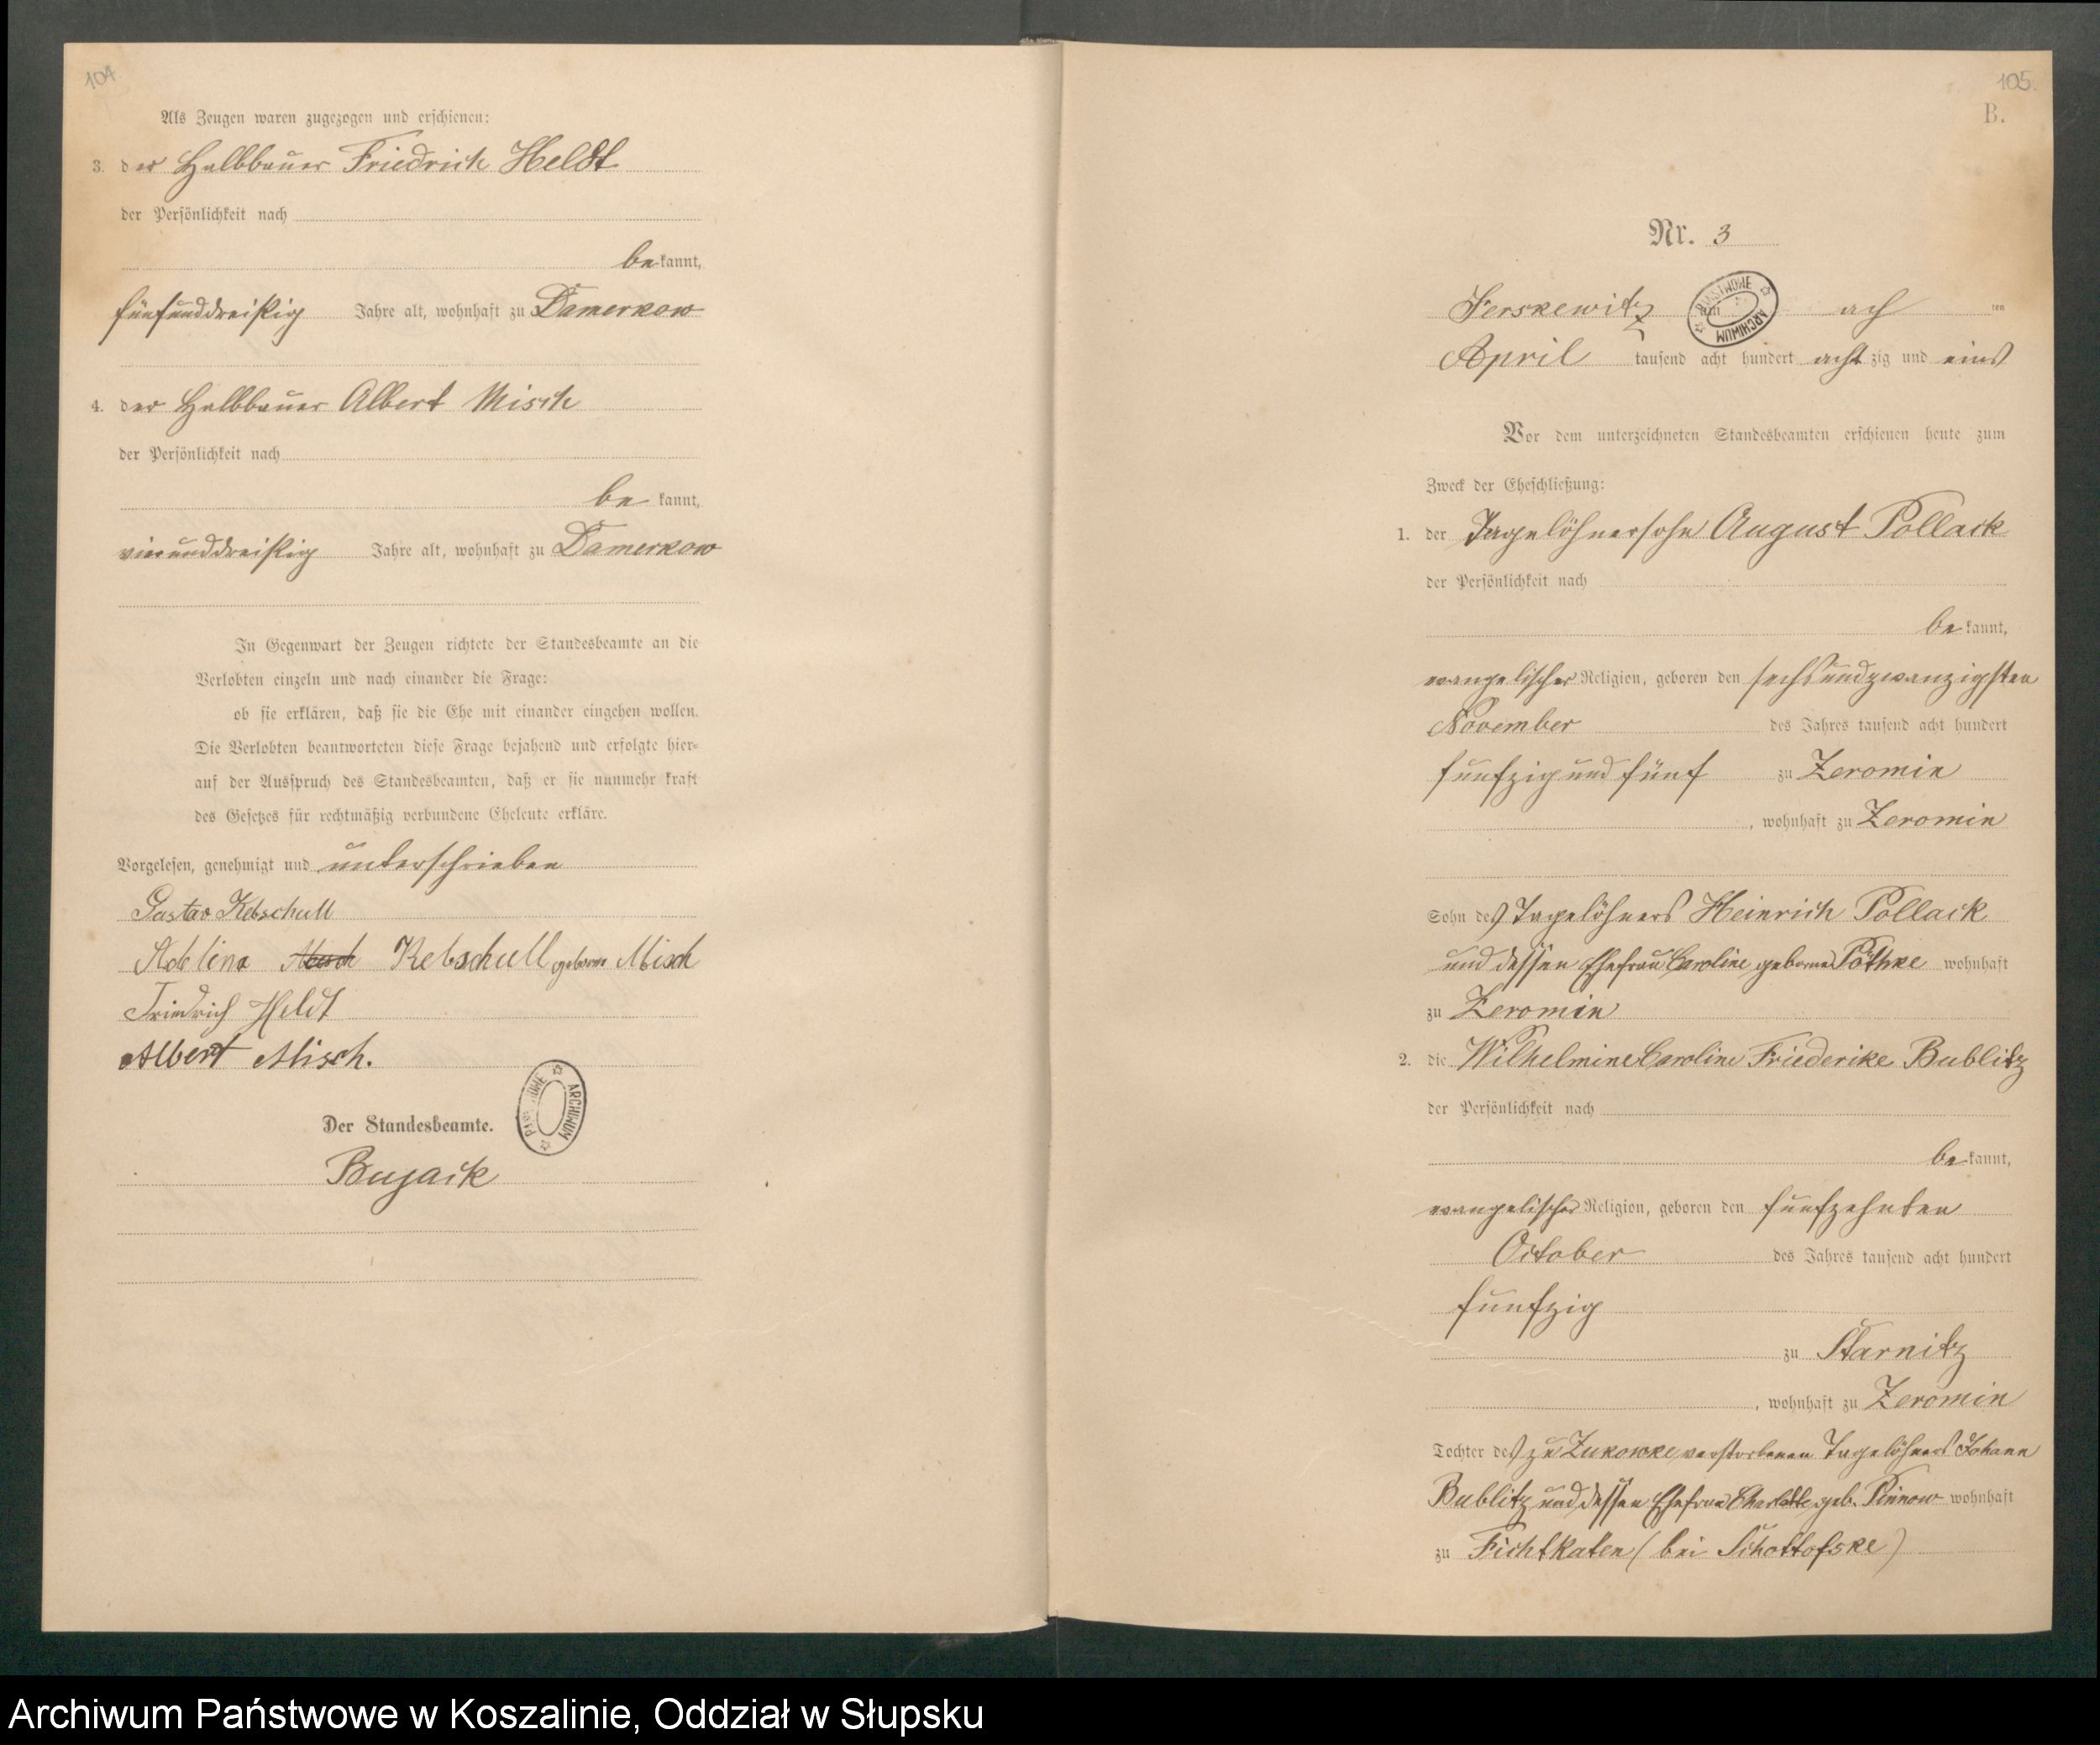 104.
Als Zeugen waren zugezogen und erschienen:
3. der Halbbauer Friedrich Heldt
der Persönlichkeit nach
bekannt,
fünfunddreißig Jahre alt, wohnhaft zu Damerkow
4. der Halbbauer Albert Misch
der Persönlichkeit nach
be kannt,
vierunddreißig Jahre alt, wohnhaft zu Damerkow
In Gegenwart der Zeugen richtete der Standesbeamte an die
Verlobten einzeln und nach einander die Frage:
ob sie erklären, daß sie die Ehe mit einander eingehen wollen.
Die Verlobten beantworteten diese Frage bejahend und erfolgte hier-
auf der Ausspruch des Standesbeamten, daß er sie nunmehr kraft
des Gesetzes für rechtmäßig verbundene Eheleute erkläre.
Vorgelesen, genehmigt und unterschrieben
Gustav Kebschull
Adeline Misch Kebschull geborne Misch
Friedrich Heldt
Albert Misch.
Der Standesbeamte.
ARCHIWUM
Bujack
105.
B.
Nr. 3
Jerskewitz am ach ten
PAŃSTWOWE ARCHIWUM
April tausend acht hundert achtzig und eins
Vor dem unterzeichneten Standesbeamten erschienen heute zum
Zweck der Eheschließung:
1. der Tagelöhnersohn August Pollack
der Persönlichkeit nach
bekannt,
evangelischer Religion, geboren den sechsundzwanzigsten
November des Jahres tausend acht hundert
fünfzig und fünf zu Zeromin
, wohnhaft zu Zeromin
Sohn des Tagelöhners Heinrich Pollack
und dessen Ehefrau Caroline geborne Pöthke wohnhaft
zu Zeromin
2. die Wilhelmine Caroline Friederike Bublitz
der Persönlichkeit nach
bekannt,
evangelischer Religion, geboren den fünfzehnten
October des Jahres tausend acht hundert
fünfzig
zu Starnitz
, wohnhaft zu Zeromin
Tochter des zu Zukowke verstorbenen Tagelöhners Johann
Bublitz und dessen Ehefrau Charlotte geb. Pinnow wohnhaft
zu Fichtkaten (bei Schottofske)
Archiwum Państwowe w Koszalinie, Oddział w Słupsku